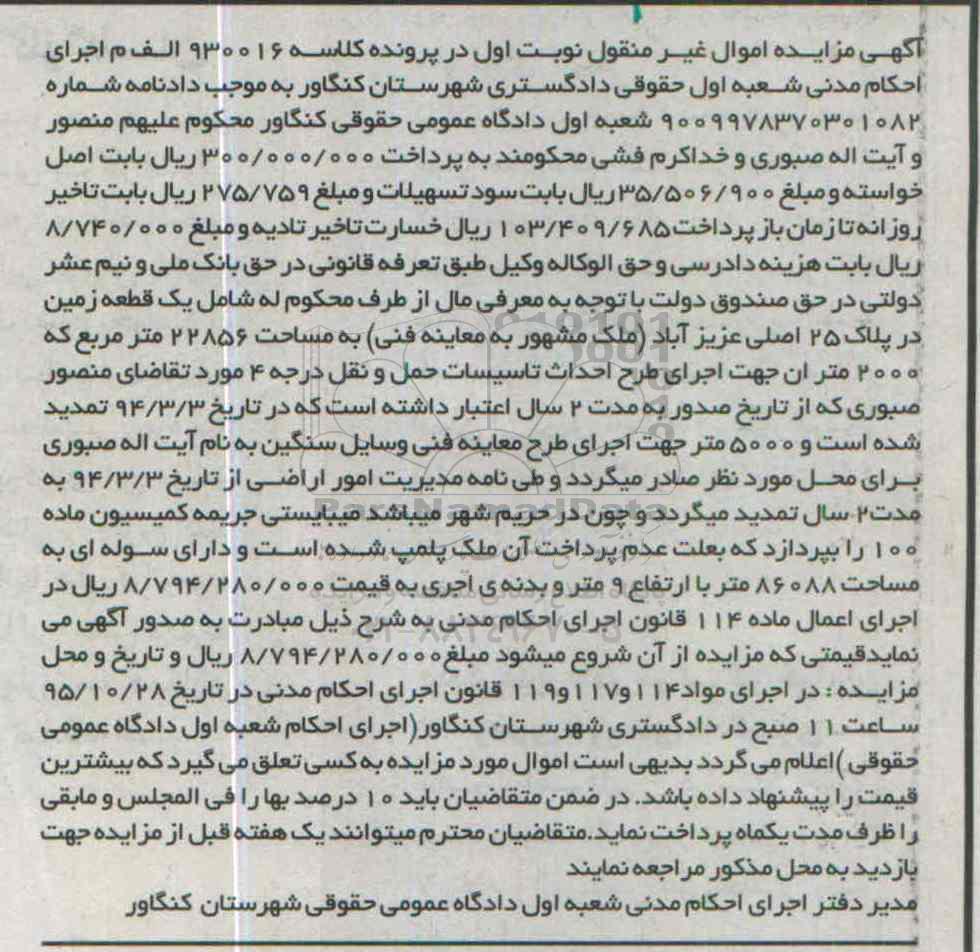 آگهی مزایده اموال غیر منقول نوبت اول در پرونده کلاسه ۹۳۰۰۱۶ الف م اجرای
احکام مدنی شعبه اول حقوقی دادگستری شهرستان کنگاور به موجب دادنامه شماره
۹۰۰۹۹۷۸۳۷۰۳۰۱۰۸۲ شعبه اول دادگاه عمومی حقوقی کنگاور محکوم علیهم منصور
و آیت اله صبوری و خداکرم فشی محکومند به پرداخت ۳۰۰/۰۰۰/۰۰۰ ریال بابت اصل
خواسته و مبلغ ۳۵/۵۰۶/۹۰۰ ریال بابت سود تسهیلات و مبلغ ۲۷۵/۷۵۹ ریال بابت تاخیر
روزانه تا زمان باز پرداخت ۱۰۳/۴۰۹/۶۸۵ ریال خسارت تاخیر تادیه و مبلغ ۸/۷۴۰/۰۰۰
ریال بابت هزینه دادرسی و حق الوکاله وکیل طبق تعرفه قانونی در حق بانک ملی و نیم عشر
دولتی در حق صندوق دولت با توجه به معرفی مال از طرف محکوم له شامل یک قطعه زمین
در پلاک ۲۵ اصلی عزیز آباد (ملک مشهور به معاینه فنی) به مساحت ۲۲۸۵۶ متر مربع که
۲۰۰۰ متر ان جهت اجرای طرح احداث تاسیسات حمل و نقل درجه ۴ مورد تقاضای منصور
صبوری که از تاریخ صدور به مدت ۲ سال اعتبار داشته است که در تاریخ ۹۴/۳/۳ تمدید
شده است و ۵۰۰۰ متر جهت اجرای طرح معاینه فنی وسایل سنگین به نام آیت اله صبوری
برای محل مورد نظر صادر میگردد و طی نامه مدیریت امور اراضی از تاریخ ۹۴/۳/۳ به
مدت ۲ سال تمدید میگردد و چون در حریم شهر میباشد میبایستی جریمه کمیسیون ماده
۱۰۰ را بپردازد که بعلت عدم پرداخت آن ملک پلمپ شده است و دارای سوله ای به
مساحت ۸۶۰۸۸ متر با ارتفاع ۹ متر و بدنه ی اجری به قیمت ۸/۷۹۴/۲۸۰/۰۰۰ ریال در
اجرای اعمال ماده ۱۱۴ قانون اجرای احکام مدنی به شرح ذیل مبادرت به صدور آگهی می
نمایدقیمتی که مزایده از آن شروع میشود مبلغ ۸/۷۹۴/۲۸۰/۰۰۰ ریال و تاریخ و محل
مزایده : در اجرای مواد ۱۱۴ و۱۱۷ و۱۱۹ قانون اجرای احکام مدنی در تاریخ ۹۵/۱۰/۲۸
ساعت ۱۱ صبح در دادگستری شهرستان کنگاور(اجرای احکام شعبه اول دادگاه عمومی
حقوقی )اعلام می گردد بدیهی است اموال مورد مزایده به کسی تعلق می گیرد که بیشترین
قیمت را پیشنهاد داده باشد. در ضمن متقاضیان باید ۱۰ درصد بها را فی المجلس و مابقی
را ظرف مدت یکماه پرداخت نماید.متقاضیان محترم میتوانند یک هفته قبل از مزایده جهت
بازدید به محل مذکور مراجعه نمایند
مدیر دفتر اجرای احکام مدنی شعبه اول دادگاه عمومی حقوقی شهرستان کنگاور